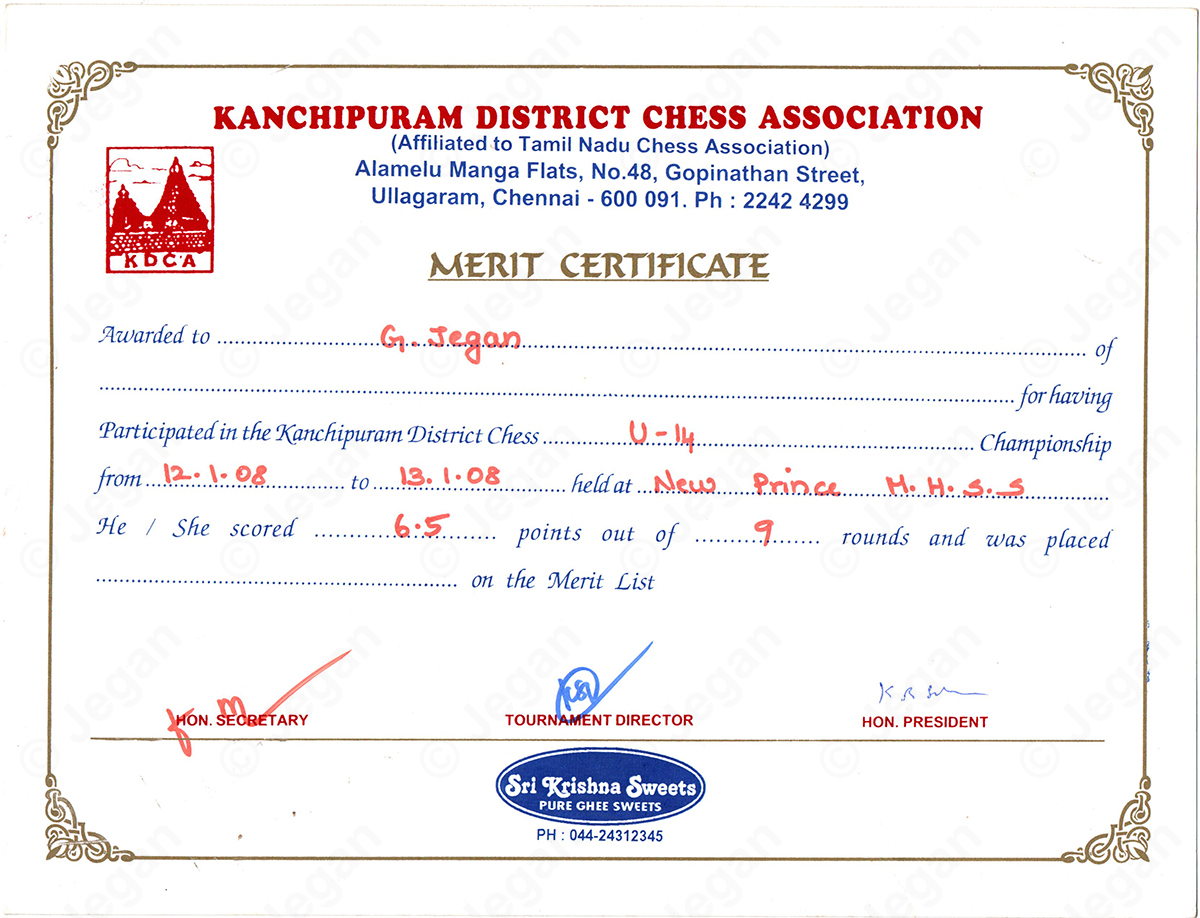 KANCHIPURAM DISTRICT CHESS ASSOCIATION
(Affiliated to Tamil Nadu Chess Association)
Alamelu Manga Flats, No.48, Gopinathan Street,
Ullagaram, Chennai - 600 091. Ph : 2242 4299
KDCA
MERIT CERTIFICATE
Awarded to G. Jegan of
for having
Participated in the Kanchipuram District Chess U-14 Championship
from 12.1.08 to 13.1.08 held at New Prince M.H.S.S
He / She scored 6.5 points out of 9 rounds and was placed
on the Merit List
HON. SECRETARY
TOURNAMENT DIRECTOR
HON. PRESIDENT
Sri Krishna Sweets
PURE GHEE SWEETS
PH : 044-24312345
© Jegan